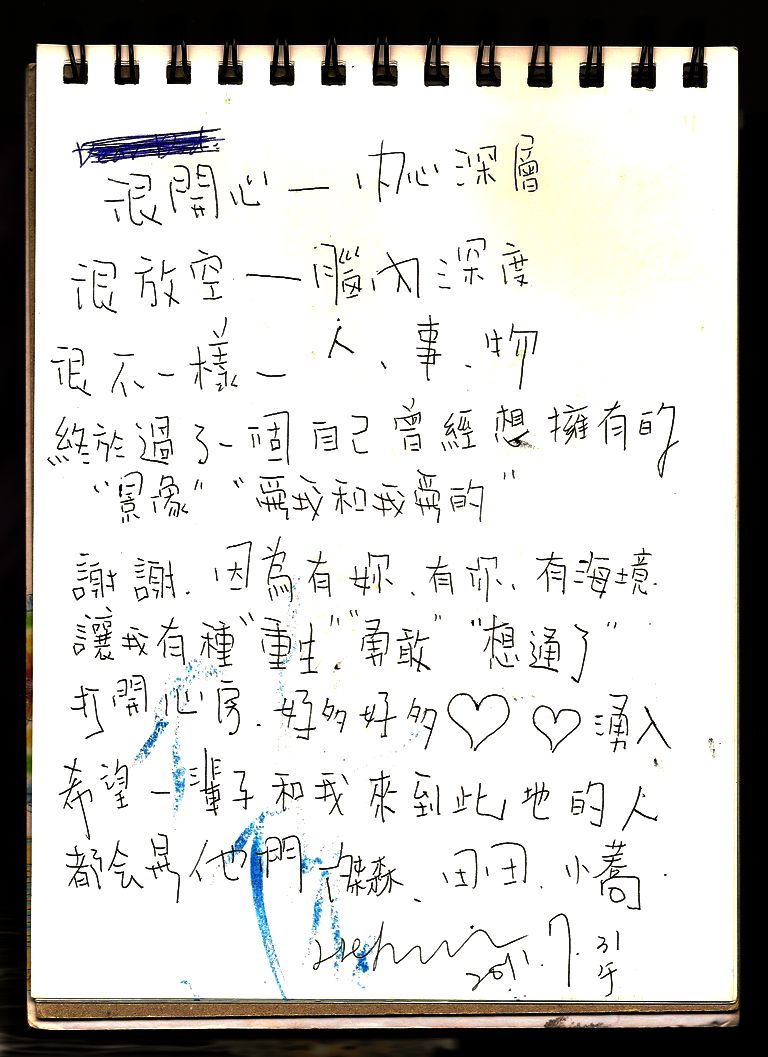 很開心一內心深層
很放空一腦內深度
很不一樣一人、事、物
終於過了一個自己曾經想擁有的
"景像" "愛我和我愛的"
謝謝、因為有妳、有你、有海境
讓我有種"重生" "勇敢" "想通了"
打開心房、好多好多♡♡湧入
希望一輩子和我來到此地的人
都会是他們 傑森、田田、小蕎.
2011.7.31
午